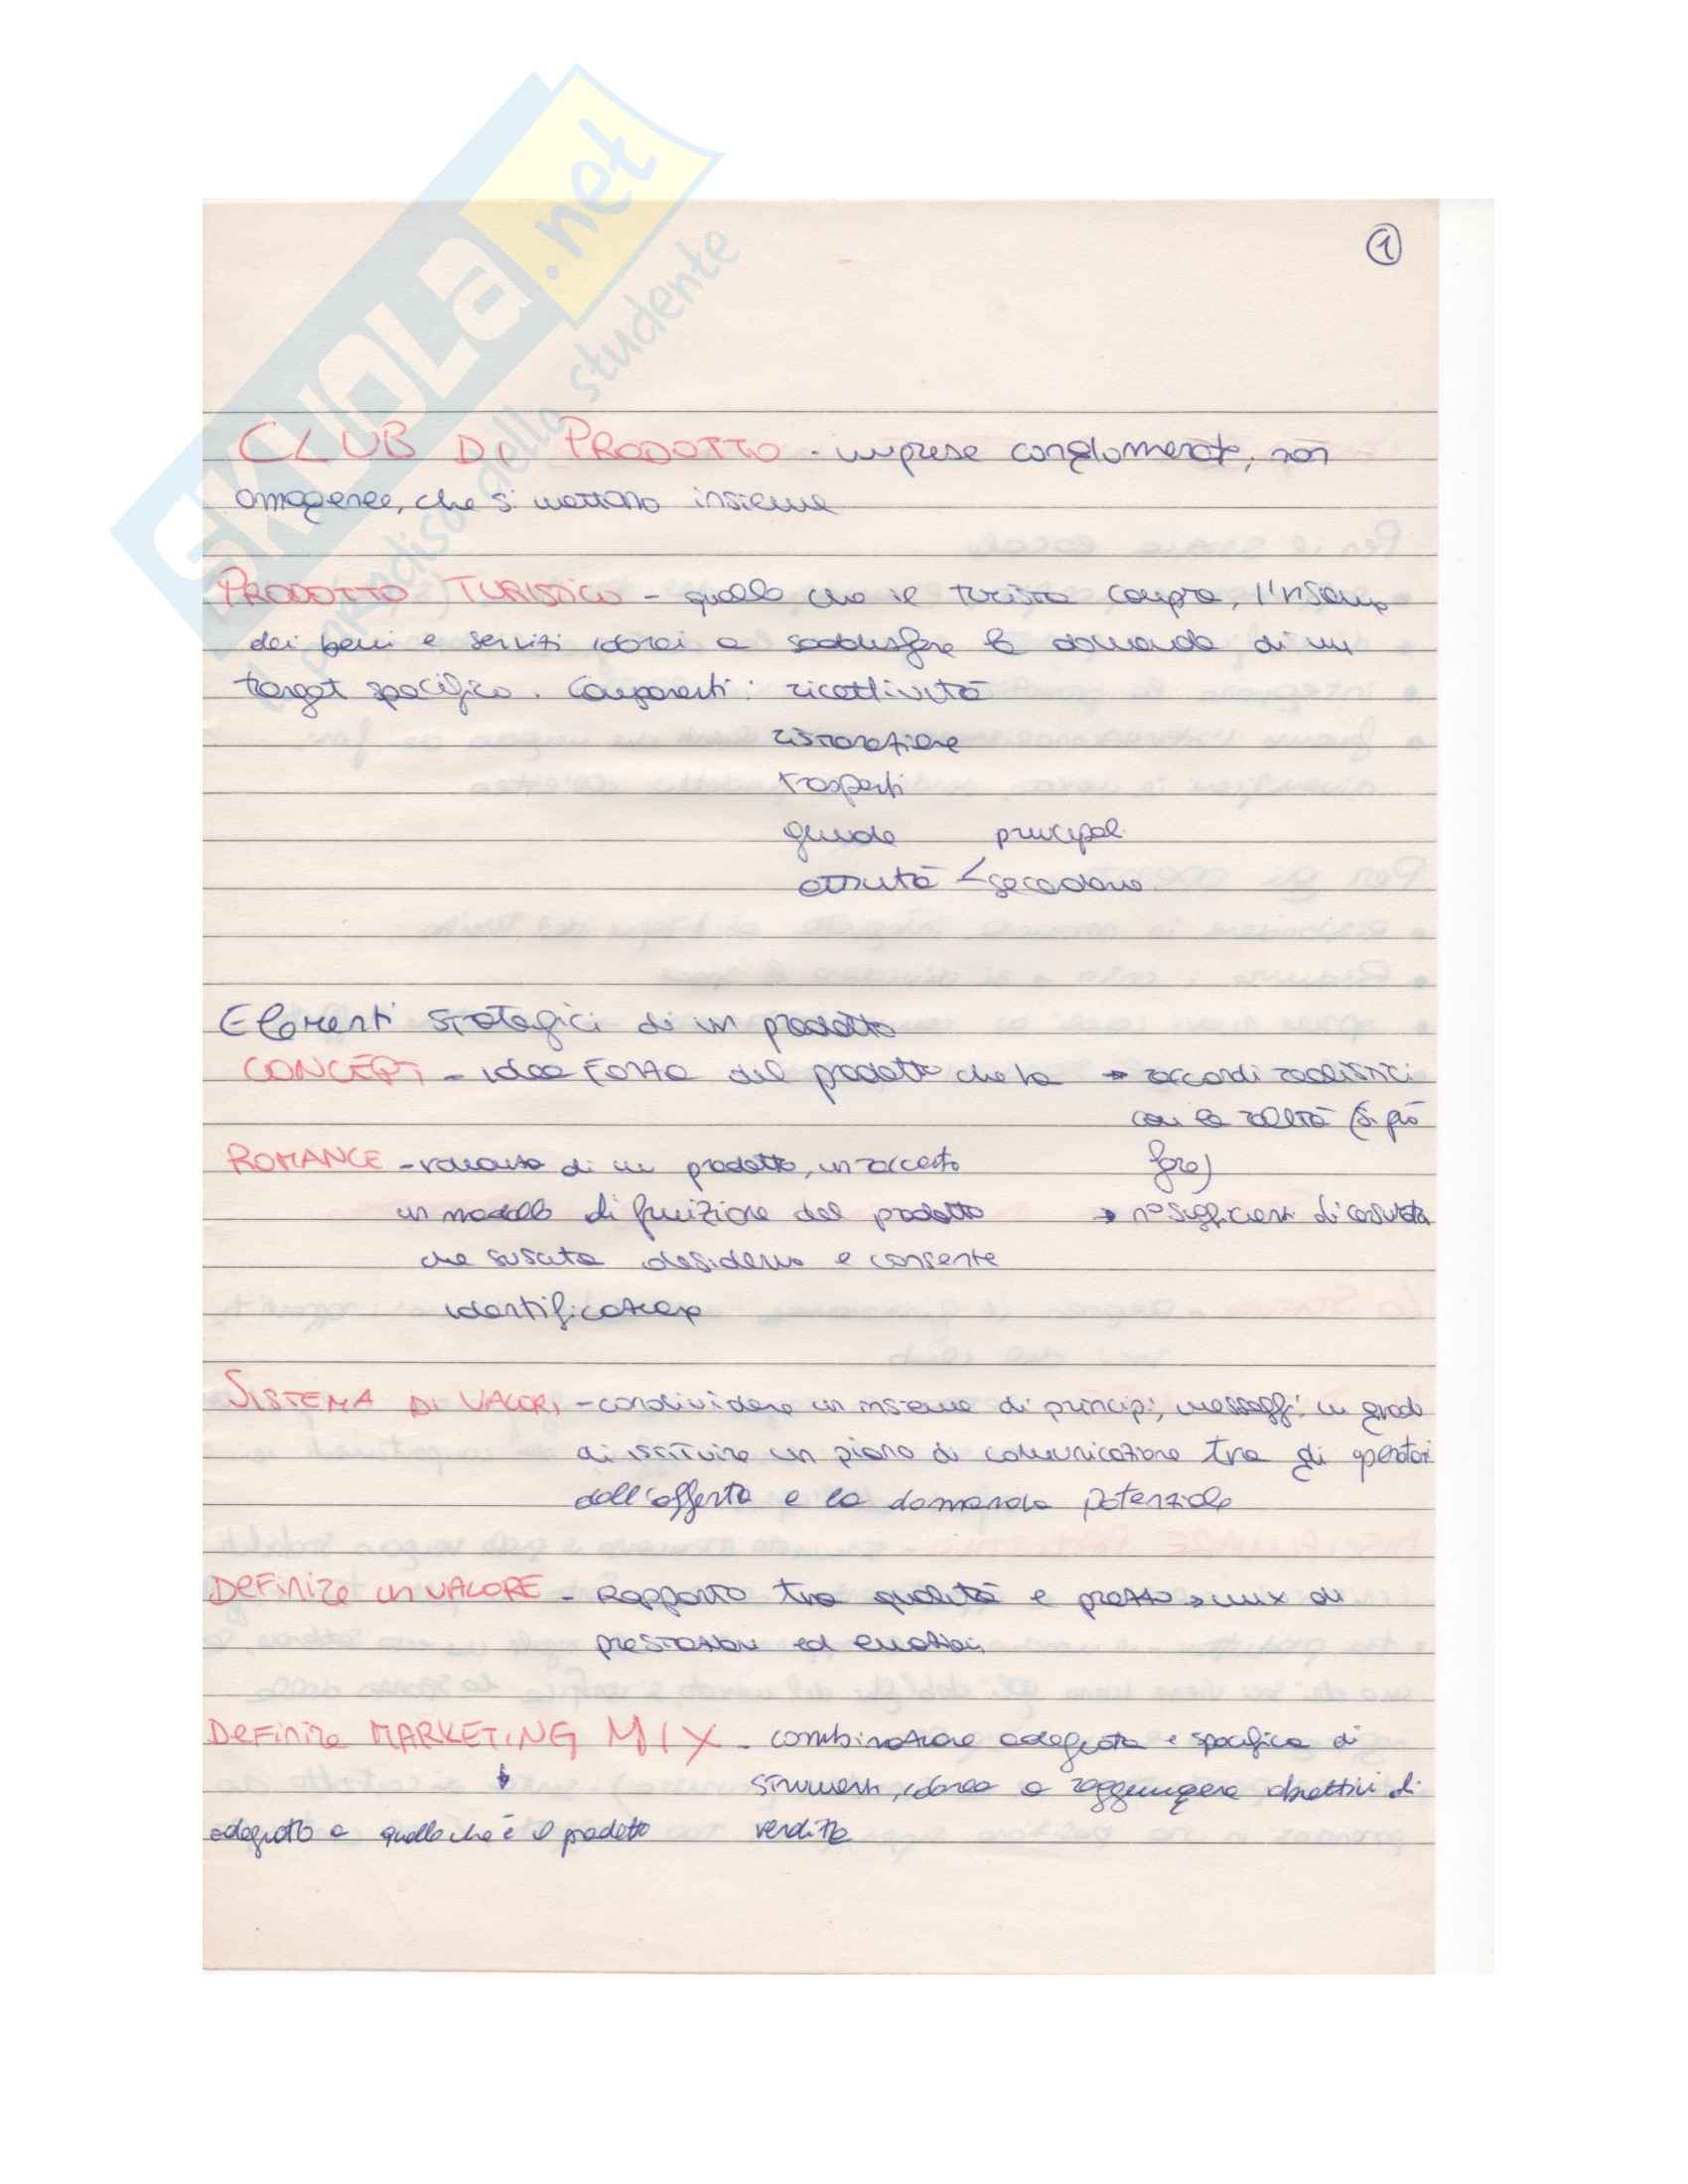 SKUOLa.net
il paradiso dello studente
1
CLUB DI PRODOTTO - imprese conglomerate, non
omogenee, che si mettono insieme
PRODOTTO TURISTICO - quello che il turista compra, l'insieme
dei beni e servizi idonei a soddisfare la domanda di un
target specifico. Componenti: ricettività
ristorazione
trasporti
guide principali
attività < secondarie
Elementi strategici di un prodotto
CONCEPT - idea forza del prodotto che ha → raccordi realistici
con la realtà (si può
ROMANCE - romanzo di un prodotto, un racconto fare)
un modello di fruizione del prodotto → n° sufficiente di
che suscita desiderio e consente
identificazione
SISTEMA DI VALORI - condividere un insieme di principi, messaggi in grado
di istituire un piano di comunicazione tra gli operatori
dell'offerta e la domanda potenziale
DEFINIRE UN VALORE - Rapporto tra qualità e prezzo → mix di
prestazioni ed emozioni
DEFINIRE MARKETING MIX - combinazione adeguata e specifica di
↓ strumenti, idonea a raggiungere obiettivi di
adeguato a quello che è il prodotto vendita